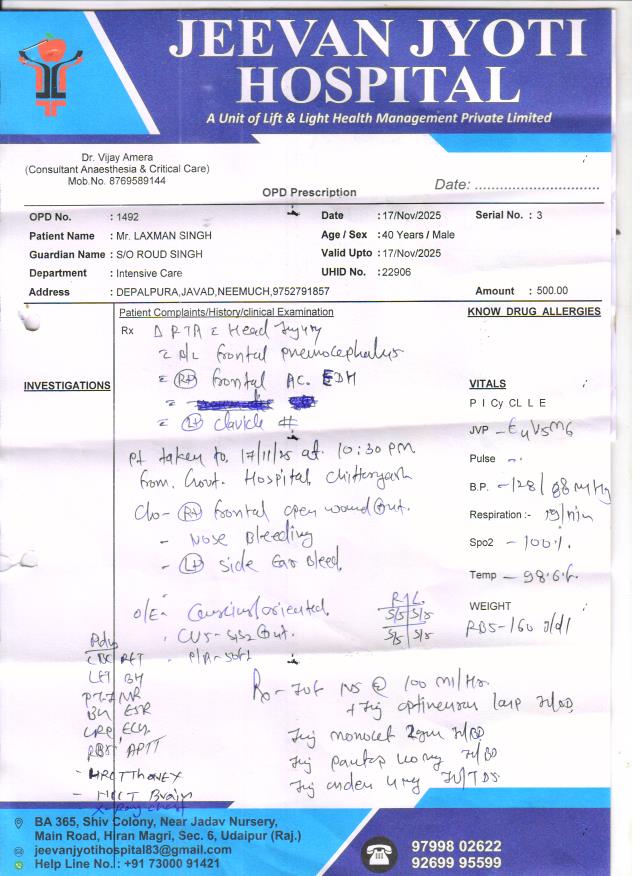 JEEVAN JYOTI
HOSPITAL
A Unit of Lift & Light Health Management Private Limited
Dr. Vijay Amera
(Consultant Anaesthesia & Critical Care)
Mob.No. 8769589144
OPD Prescription
Date: ..............................
OPD No. : 1492 Date : 17/Nov/2025 Serial No. : 3
Patient Name : Mr. LAXMAN SINGH Age / Sex : 40 Years / Male
Guardian Name : S/O ROUD SINGH Valid Upto : 17/Nov/2025
Department : Intensive Care UHID No. : 22906
Address : DEPALPURA,JAVAD,NEEMUCH,9752791857 Amount : 500.00
Patient Complaints/History/clinical Examination
KNOW DRUG ALLERGIES
Rx Δ RTA c Head Injury
c B/L frontal pneumocephalus
c Rt frontal AC. EDH
c
c Lt clavicle #
INVESTIGATIONS
VITALS
P I Cy CL L E
JVP - E4V5M6
Pulse -
B.P. - 128/88 mmHg
Respiration :- 19/min
Spo2 - 100%
Temp - 98.6 F
WEIGHT
RBS-160 g/dl
Pt taken to, 17/11/25 at 10:30 PM
from Govt. Hospital, Chittorgarh
C/o - Rt frontal open wound
- Nose Bleeding
- Lt side Ear Bleed
O/E - Conscious/oriented
R L
S/S S/S
S/S S/S
. CVS - S1S2
. P/A - soft
Adv
CBC RFT
LFT
PT-INR
ESR
CRP, ECG
RBS APTT
- HRCT Thorex
- NCCT Brain
X-Ray chest
Rx - IVF NS @ 100 ml/Hr
+ Inj optineuron 1amp IV/OD
Inj monocef 2gm IV/BD
Inj pantop 40 mg IV/BD
Inj emden 4 mg IV/TDS
BA 365, Shiv Colony, Near Jadav Nursery,
Main Road, Hiran Magri, Sec. 6, Udaipur (Raj.)
jeevanjyotihospital83@gmail.com
Help Line No.: +91 73000 91421
97998 02622
92699 95599